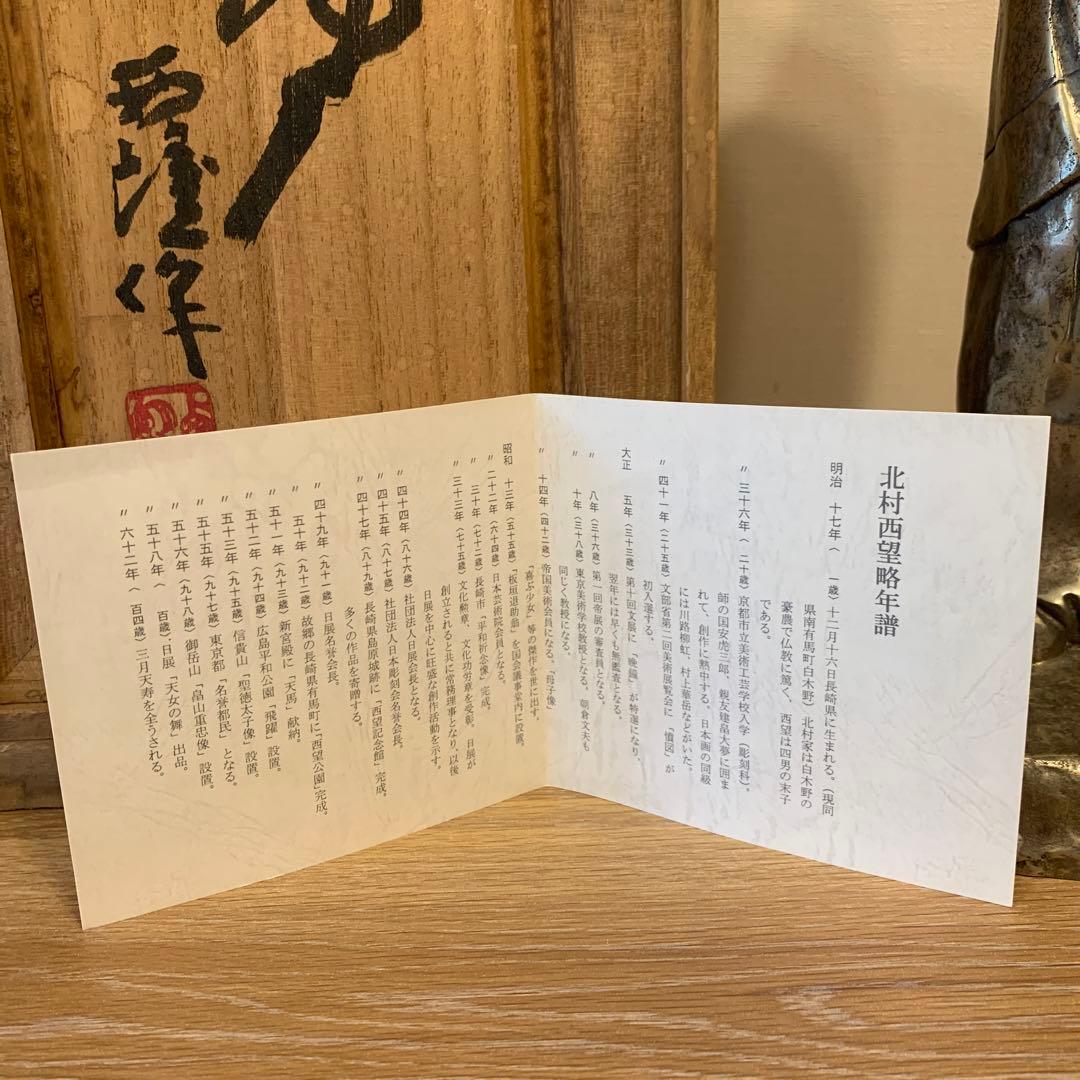 西望作
北村西望略年譜
明治 十七年( 一歳)十二月十六日長崎県に生まれる。(現同
県南有馬町白木野)北村家は白木野の
豪農で仏教に篤く、西望は四男の末子
である。
〃 三十六年( 二十歳)京都市立美術工芸学校入学(彫刻科)。
師の国安虎三郎、親友建畠大夢に囲ま
れて、創作に熱中する。日本画の同級
には川路柳虹、村上華岳などがいた。
〃 四十一年(二十五歳)文部省第二回美術展覧会に「憤図」が
初入選する。
大正 五年(三十三歳)第十回文展に「晩鐘」が特選になり、
翌年には早くも無鑑査となる。
〃 八年(三十六歳)第一回帝展の審査員となる。
〃 十年(三十八歳)東京美術学校教授となる。朝倉文夫も
同じく教授になる。
〃 十四年(四十二歳)帝国美術会員になる。「母子像」
「喜ぶ少女」等の傑作を世に出す。
昭和 十三年(五十五歳)「板垣退助翁」を国会議事堂内に設置。
〃 二十二年(六十四歳)日本芸術院会員となる。
〃 三十年(七十二歳)長崎市「平和祈念像」完成。
〃 三十三年(七十五歳)文化勲章、文化功労章を受彰。日展が
創立されると共に常務理事となり、以後
日展を中心に旺盛な創作活動を示す。
〃 四十四年(八十六歳)社団法人日展会長となる。
〃 四十五年(八十七歳)社団法人日本彫刻会名誉会長。
〃 四十七年(八十九歳)長崎県島原城跡に「西望記念館」完成。
多くの作品を寄贈する。
〃 四十九年(九十一歳)日展名誉会長。
〃 五十年(九十二歳)故郷の長崎県有馬町に「西望公園」完成。
〃 五十一年(九十三歳)新宮殿に「天馬」献納。
〃 五十二年(九十四歳)広島平和公園「飛躍」設置。
〃 五十三年(九十五歳)信貴山「聖徳太子像」設置。
〃 五十五年(九十七歳)東京都「名誉都民」となる。
〃 五十六年(九十八歳)御岳山「畠山重忠像」設置。
〃 五十八年( 百歳)日展「天女の舞」出品。
〃 六十二年( 百四歳)三月天寿を全うされる。